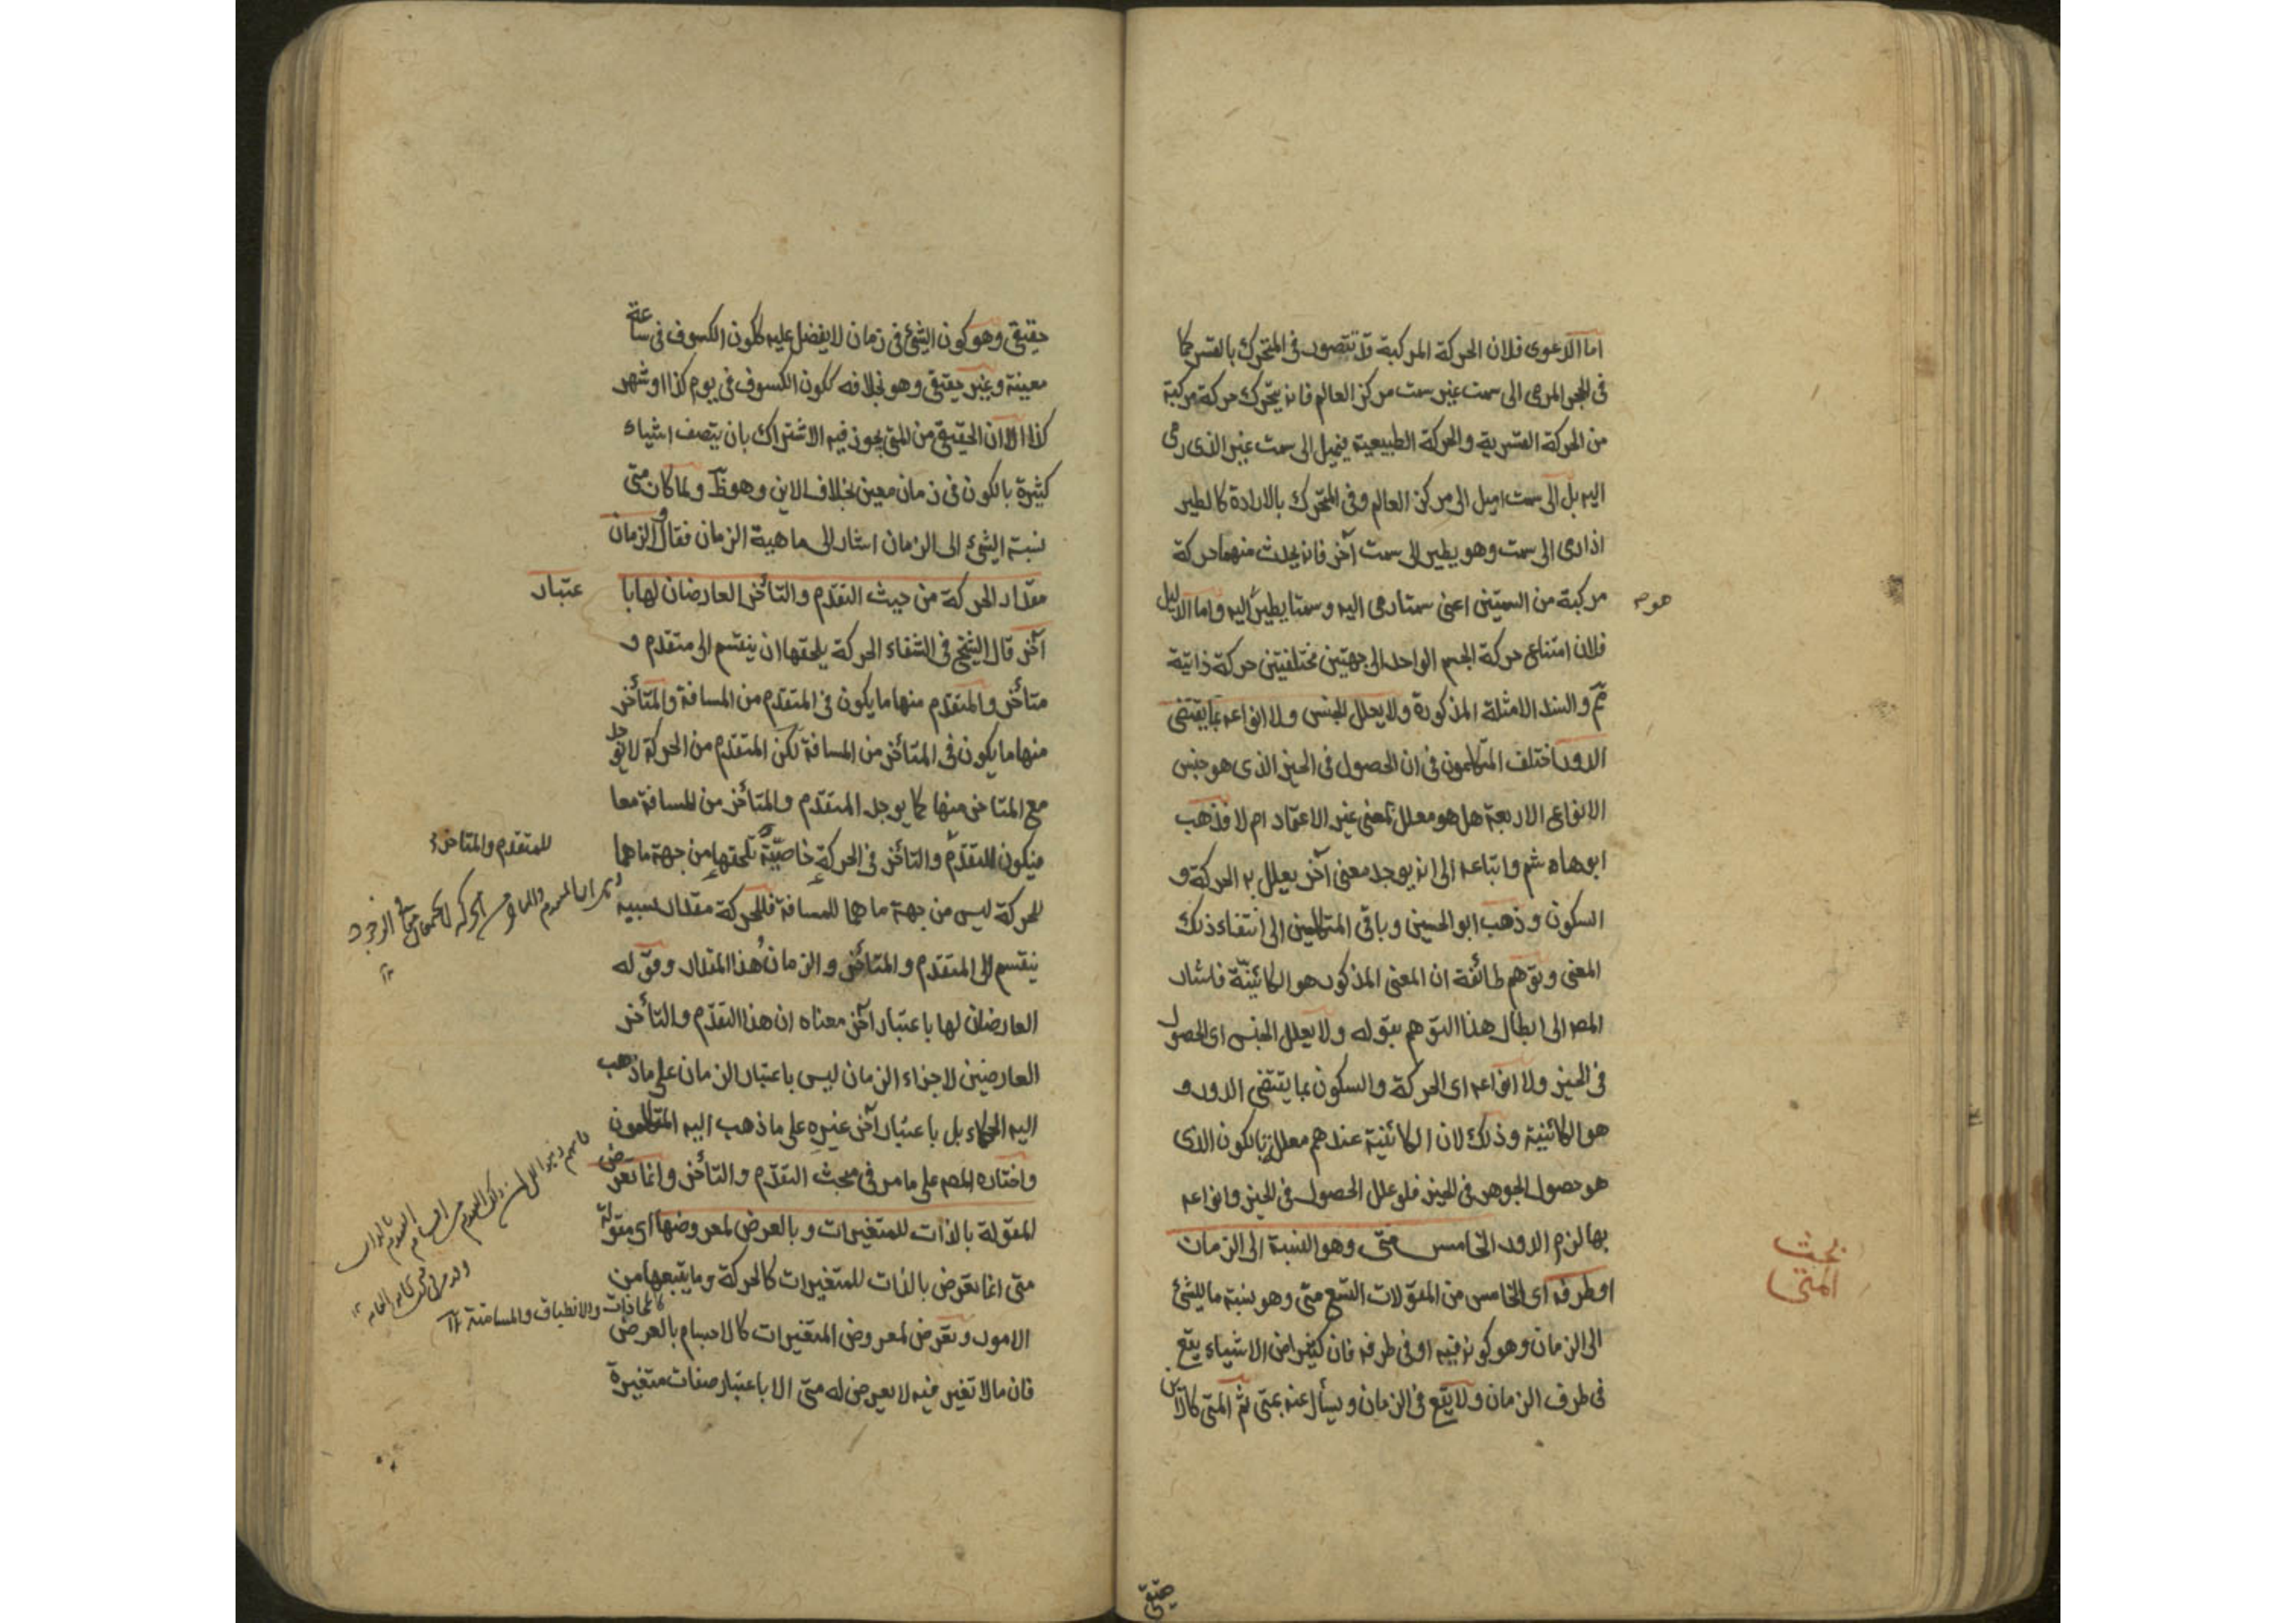 اما الدعوى فلان الحركة المركبة قد تتصور فى المتحرك بالقسر كما
فى الحجر المرمى الى سمت غير سمت مركز العالم فانه يتحرك حركة مركبة
من الحركة القسرية والحركة الطبيعية فيميل الى سمت غير الذى رمى
اليه بل الى سمت اميل الى مركز العالم وفى المتحرك بالارادة كالطير
اذا رمى الى سمت وهو يطير الى سمت آخر فانه يحدث منهما حركة
مركبة من السمتين اعنى سمتا رمى اليه وسمتا يطير اليه واما الدليل
هو
فلان امتناع حركة الجسم الواحد الى جهتين مختلفتين حركة ذاتية
مم والسند الامثلة المذكورة ولا يعلل الجنس ولا انواعه بما يقتضى
الدور اختلف المتكلمون فى ان الحصول فى الحيز الذى هو جنس
الانواع الاربعة هل هو معلل بمعنى غير الاعتماد ام لا فذهب
ابو هاشم واتباعه الى انه يوجد معنى آخر يعلل به الحركة و
السكون وذهب ابو الحسين وباقى المتكلمين الى انتفاء ذلك
المعنى وتوهم طائفة ان المعنى المذكور هو الكائنية فاشار
المصه الى ابطال هذا التوهم بقوله ولا يعلل الجنس اى الحصول
فى الحيز ولا انواعه اى الحركة والسكون بما يقتضى الدور و
هو الكائنية وذلك لان الكائنية عندهم معلل بالكون الذى
هو حصول الجوهر فى الحيز فلو علل الحصول فى الحيز وانواعه
بها لزم الدور الخامس متى وهو النسبة الى الزمان
بحث
المتى
او طرفه اى الخامس من المقولات التسع متى وهو نسبة ما للشئ
الى الزمان وهو كونه فيه او فى طرفه فان كثيرا من الاشياء يقع
فى طرف الزمان ولا يقع فى الزمان ويسأل عنه بمتى ثم المتى كالاين
حقيقى
حقيقى وهو كون الشئ فى زمان لا يفضل عليه ككون الكسوف فى ساعة
معينة وغير حقيقى وهو بخلافه ككون الكسوف فى يوم كذا او شهر
كذا الا ان الحقيقى من المتى يجوز فيه الاشتراك بان يتصف اشياء
كثيرة بالكون فى زمان معين بخلاف الاين وهو ظ ولما كان متى
نسبة الشئ الى الزمان اشار الى ماهية الزمان فقال والزمان
مقدار الحركة من حيث التقدم والتأخر العارضان لها با
عتبار
آخر قال الشيخ فى الشفاء الحركة يلحقها ان ينقسم الى متقدم و
متأخر والمتقدم منها ما يكون فى المتقدم من المسافة والمتأخر
منها ما يكون فى المتأخر من المسافة لكن المتقدم من الحركة لا يوجد
مع المتاخر منها كما يوجد المتقدم والمتأخر من المسافة معا
للمتقدم والمتاخر
فيكون للتقدم والتأخر فى الحركة خاصية تلحقها من جهة ما هما
للحركة ليس من جهة ما هما للمسافة فللحركة مقدار بسببه
ينقسم الى المتقدم والمتأخر والزمان هذا المقدار وقوله
العارضان لها باعتبار آخر معناه ان هذا التقدم والتأخر
العارضين لاجزاء الزمان ليس باعتبار الزمان على ما ذهب
اليه الحكماء بل باعتبار آخر غيره على ما ذهب اليه المتكلمون
واختاره المصه على ما مر فى مبحث التقدم والتأخر وانما تعرض
المقولة بالذات للمتغيرات وبالعرض لمعروضها اى مقولة
متى انما تعرض بالذات للمتغيرات كالحركة وما يتبعها من
كالمحاذات والانطباق والمسامتة ١٢
الامور وتعرض لمعروض المتغيرات كالاجسام بالعرض
فان ما لا تغير فيه لا يعرض له متى الا باعتبار صفات متغيرة